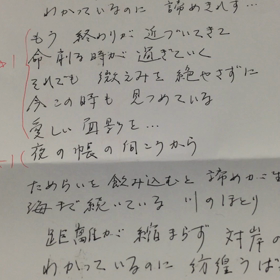 わかっているのに 諦めきれず…
もう 終わりが 近づいてきて
命 削る時が 過ぎていく
それでも 微笑みを 絶やさずに
今 この時も 見つめている
愛しい 面影を…
夜の帳の向こうから
ためらいを 飲み込むと 諦めが
海まで 続いている 川のほとり
距離が 縮まらず 対岸の
わかっているのに 彷徨うは